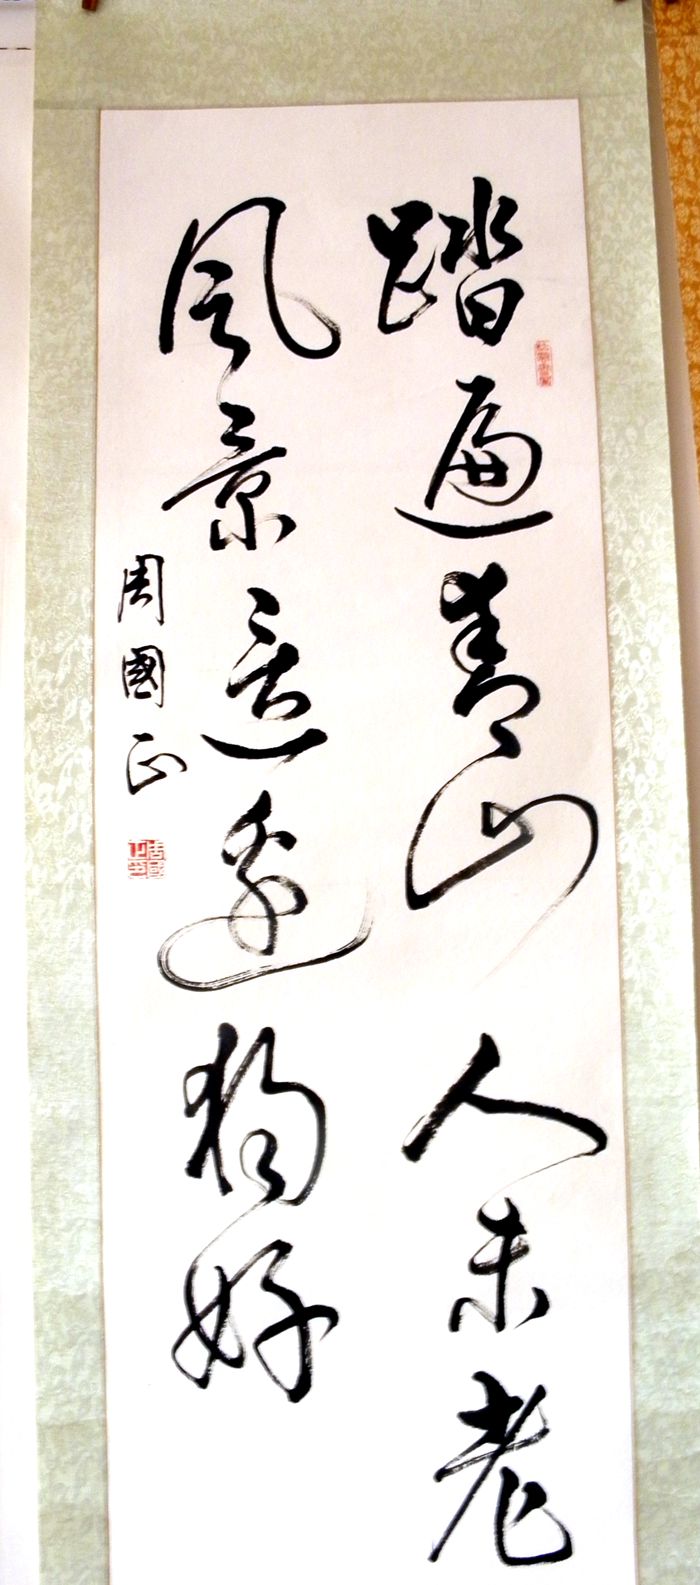 踏遍青山人未老
風景這邊獨好
周國正